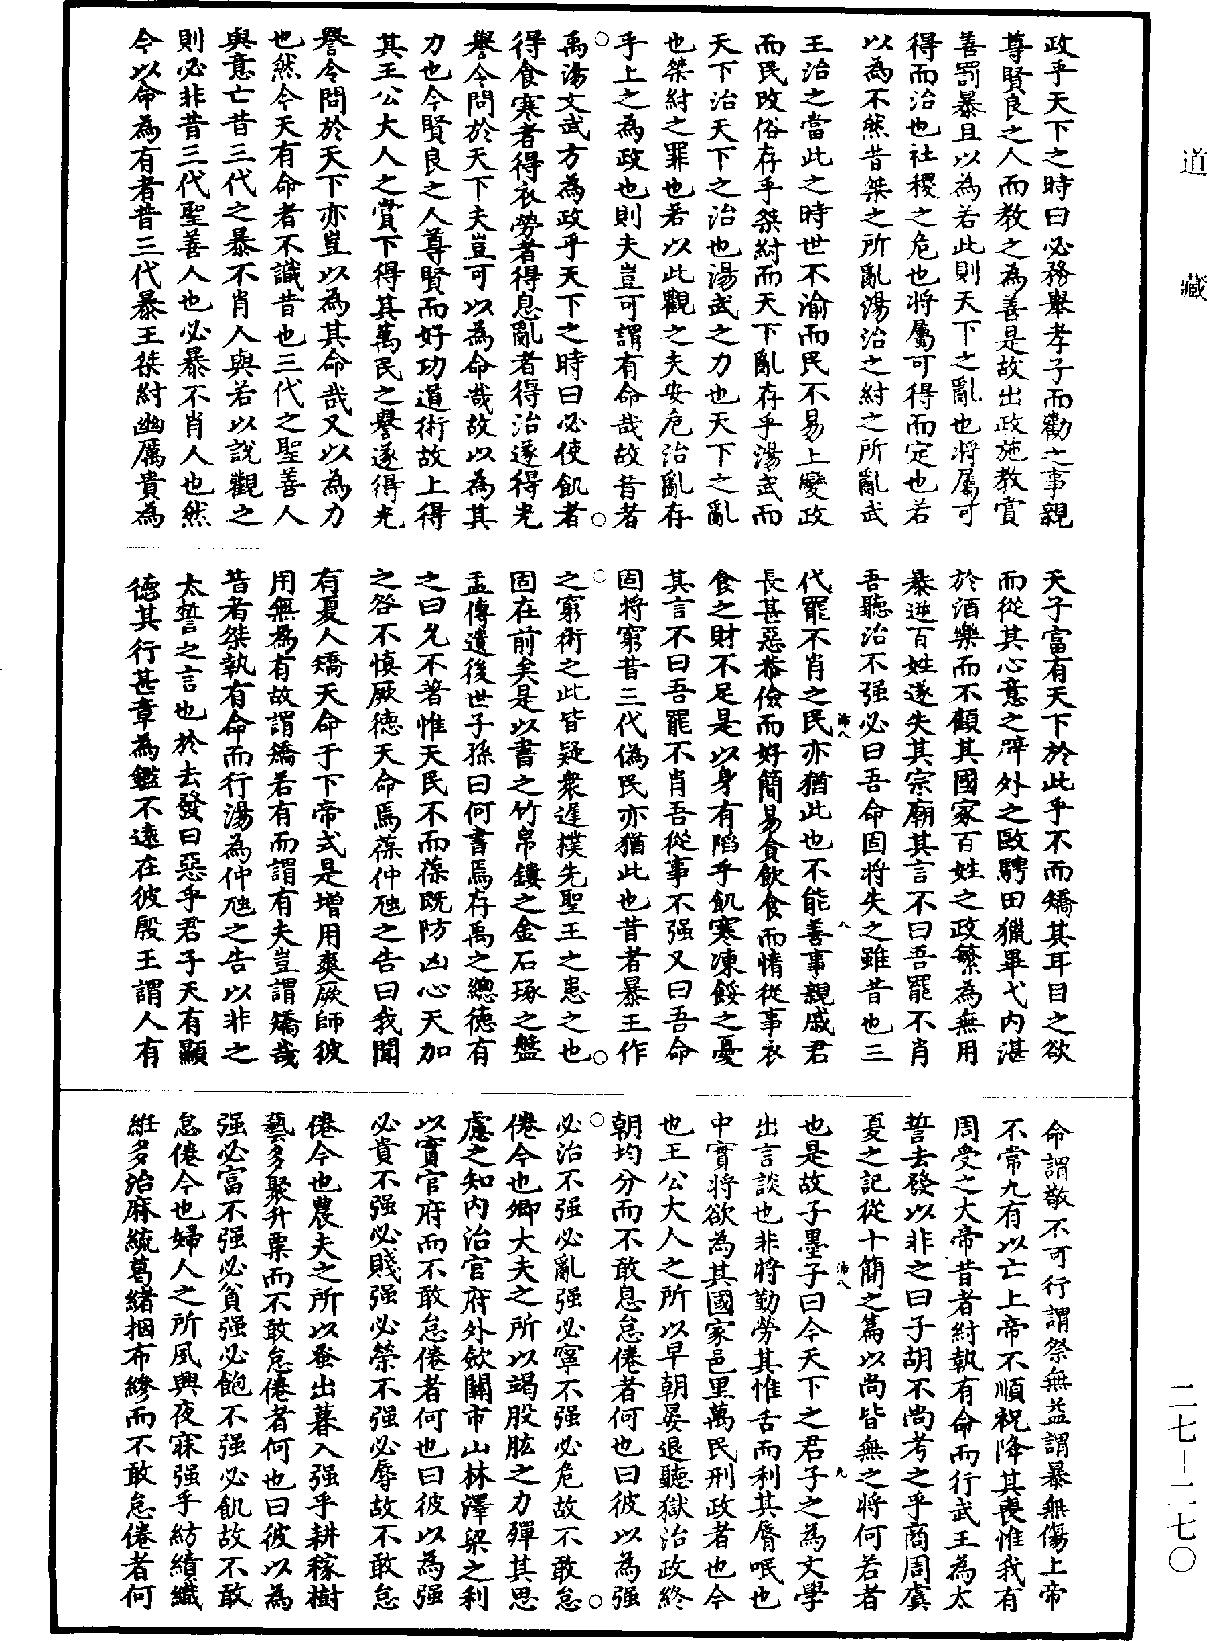 道藏
政乎天下之時曰必務舉孝子而勸之事親
尊賢良之人而教之為善是故出政施教賞
善罰暴且以為若此則天下之亂也將屬可
得而治也社稷之危也將屬可得而定也若
以為不然昔桀之所亂湯治之紂之所亂武
王治之當此之時世不渝而民不易上變政
而民改俗存乎桀紂而天下亂存乎湯武而
天下治天下之治也湯武之力也天下之亂
也桀紂之罪也若以此觀之夫安危治亂存
乎上之為政也則夫豈可謂有命哉故昔者
禹湯文武方為政乎天下之時曰必使飢者
得食寒者得衣勞者得息亂者得治遂得光
譽令問於天下夫豈可以為命哉故以為其
力也今賢良之人尊賢而好功道術故上得
其王公大人之賞下得其萬民之譽遂得光
譽令問於天下亦豈以為其命哉又以為力
也然今天有命者不識昔也三代之聖善人
與意亡昔三代之暴不肖人與若以說觀之
則必非昔三代聖善人也必暴不肖人也然
今以命為有者昔三代暴王桀紂幽厲貴為
天子富有天下於此乎不而矯其耳目之欲
而從其心意之辟外之敺騁田獵畢弋內湛
於酒樂而不顧其國家百姓之政繁為無用
暴逆百姓遂失其宗廟其言不曰吾罷不肖
吾聽治不强必曰吾命固將失之雖昔也三
代罷不肖之民亦猶此也不能善事親戚君
長甚惡恭儉而好簡易貪飲食而惰從事衣
食之財不足是以身有陷乎飢寒凍餒之憂
其言不曰吾罷不肖吾從事不强又曰吾命
固將窮昔三代偽民亦猶此也昔者暴王作
之窮術之此皆疑衆遲樸先聖王之患之也
固在前矣是以書之竹帛鏤之金石琢之盤
盂傳遺後世子孫曰何書焉存禹之總德有
之曰允不著惟天民不而葆既防凶心天加
之咎不慎厥德天命焉葆仲虺之告曰我聞
有夏人矯天命于下帝式是增用爽厥師彼
用無為有故謂矯若有而謂有夫豈謂矯哉
昔者桀執有命而行湯為仲虺之告以非之
太誓之言也於去發曰惡乎君子天有顯
德其行甚章為鑑不遠在彼殷王謂人有
命謂敬不可行謂祭無益謂暴無傷上帝
不常九有以亡上帝不順祝降其喪惟我有
周受之大帝昔者紂執有命而行武王為太
誓去發以非之曰子胡不尚考之乎商周虞
夏之記從十簡之篇以尚皆無之將何若者
也是故子墨子曰今天下之君子之為文學
出言談也非將勤勞其惟舌而利其脣呡也
中實將欲為其國家邑里萬民刑政者也今
也王公大人之所以早朝晏退聽獄治政終
朝均分而不敢息怠倦者何也曰彼以為强
必治不强必亂强必寧不强必危故不敢怠
倦今也卿大夫之所以竭股肱之力殫其思
慮之知內治官府外歛關市山林澤梁之利
以實官府而不敢怠倦者何也曰彼以為强
必貴不强必賤强必榮不强必辱故不敢怠
倦今也農夫之所以蚤出暮入强乎耕稼樹
藝多聚升粟而不敢怠倦者何也曰彼以為
强必富不强必貧强必飽不强必飢故不敢
怠倦今也婦人之所夙興夜寐强乎紡績織
紝多治麻統葛緒捆布縿而不敢怠倦者何
二七-二七〇